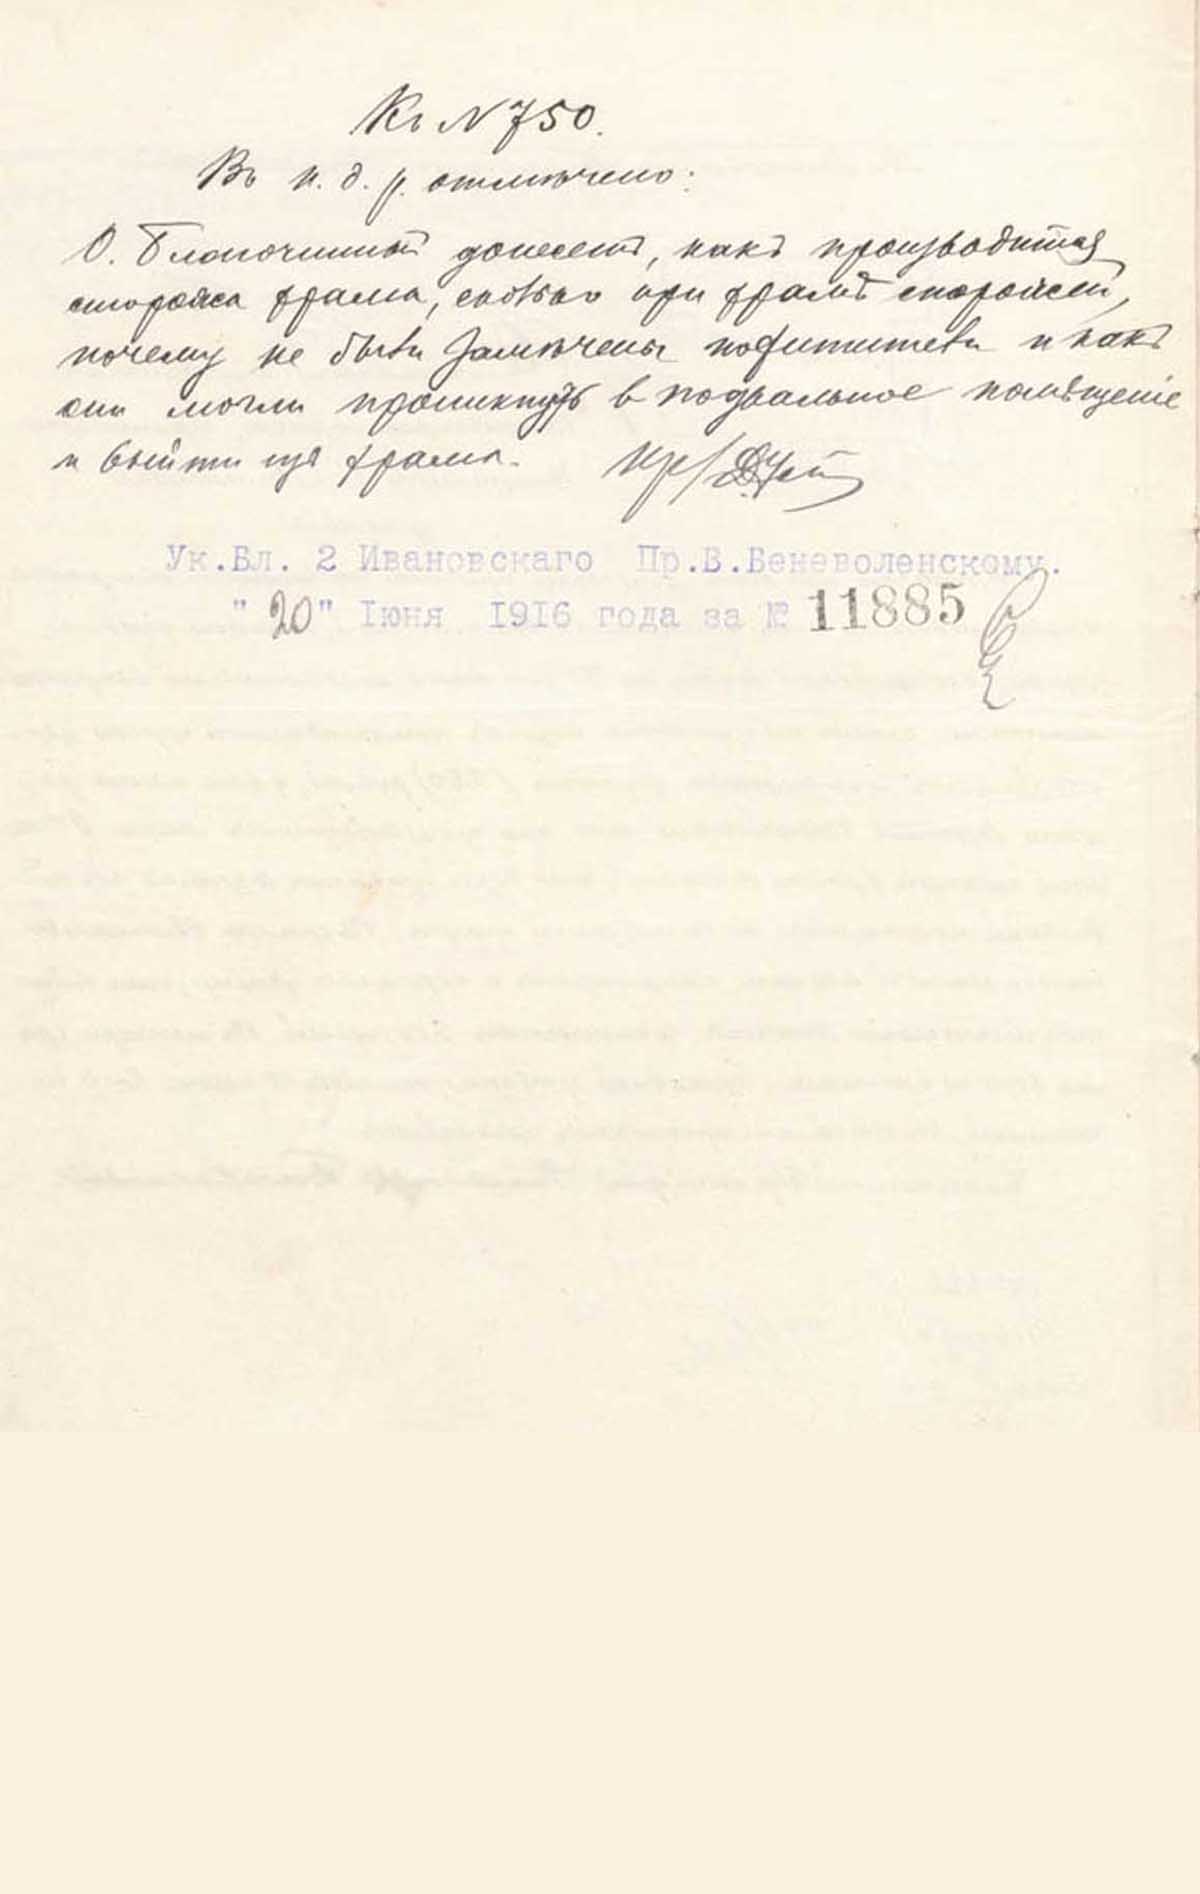 Къ N 750.
Въ н. д. р. отмѣчено:
О. Благочинный донесетъ, какъ производится
сторожа храма, сколько при храмѣ сторожей,
почему не были замѣчены похитители и какъ
они могли проникнуть в подвальное помѣщеніе
и выйти изъ храма.
Ук.Бл. 2 Ивановскаго Пр.В.Беневоленскому.
"20" Iюня 1916 года за № 11885